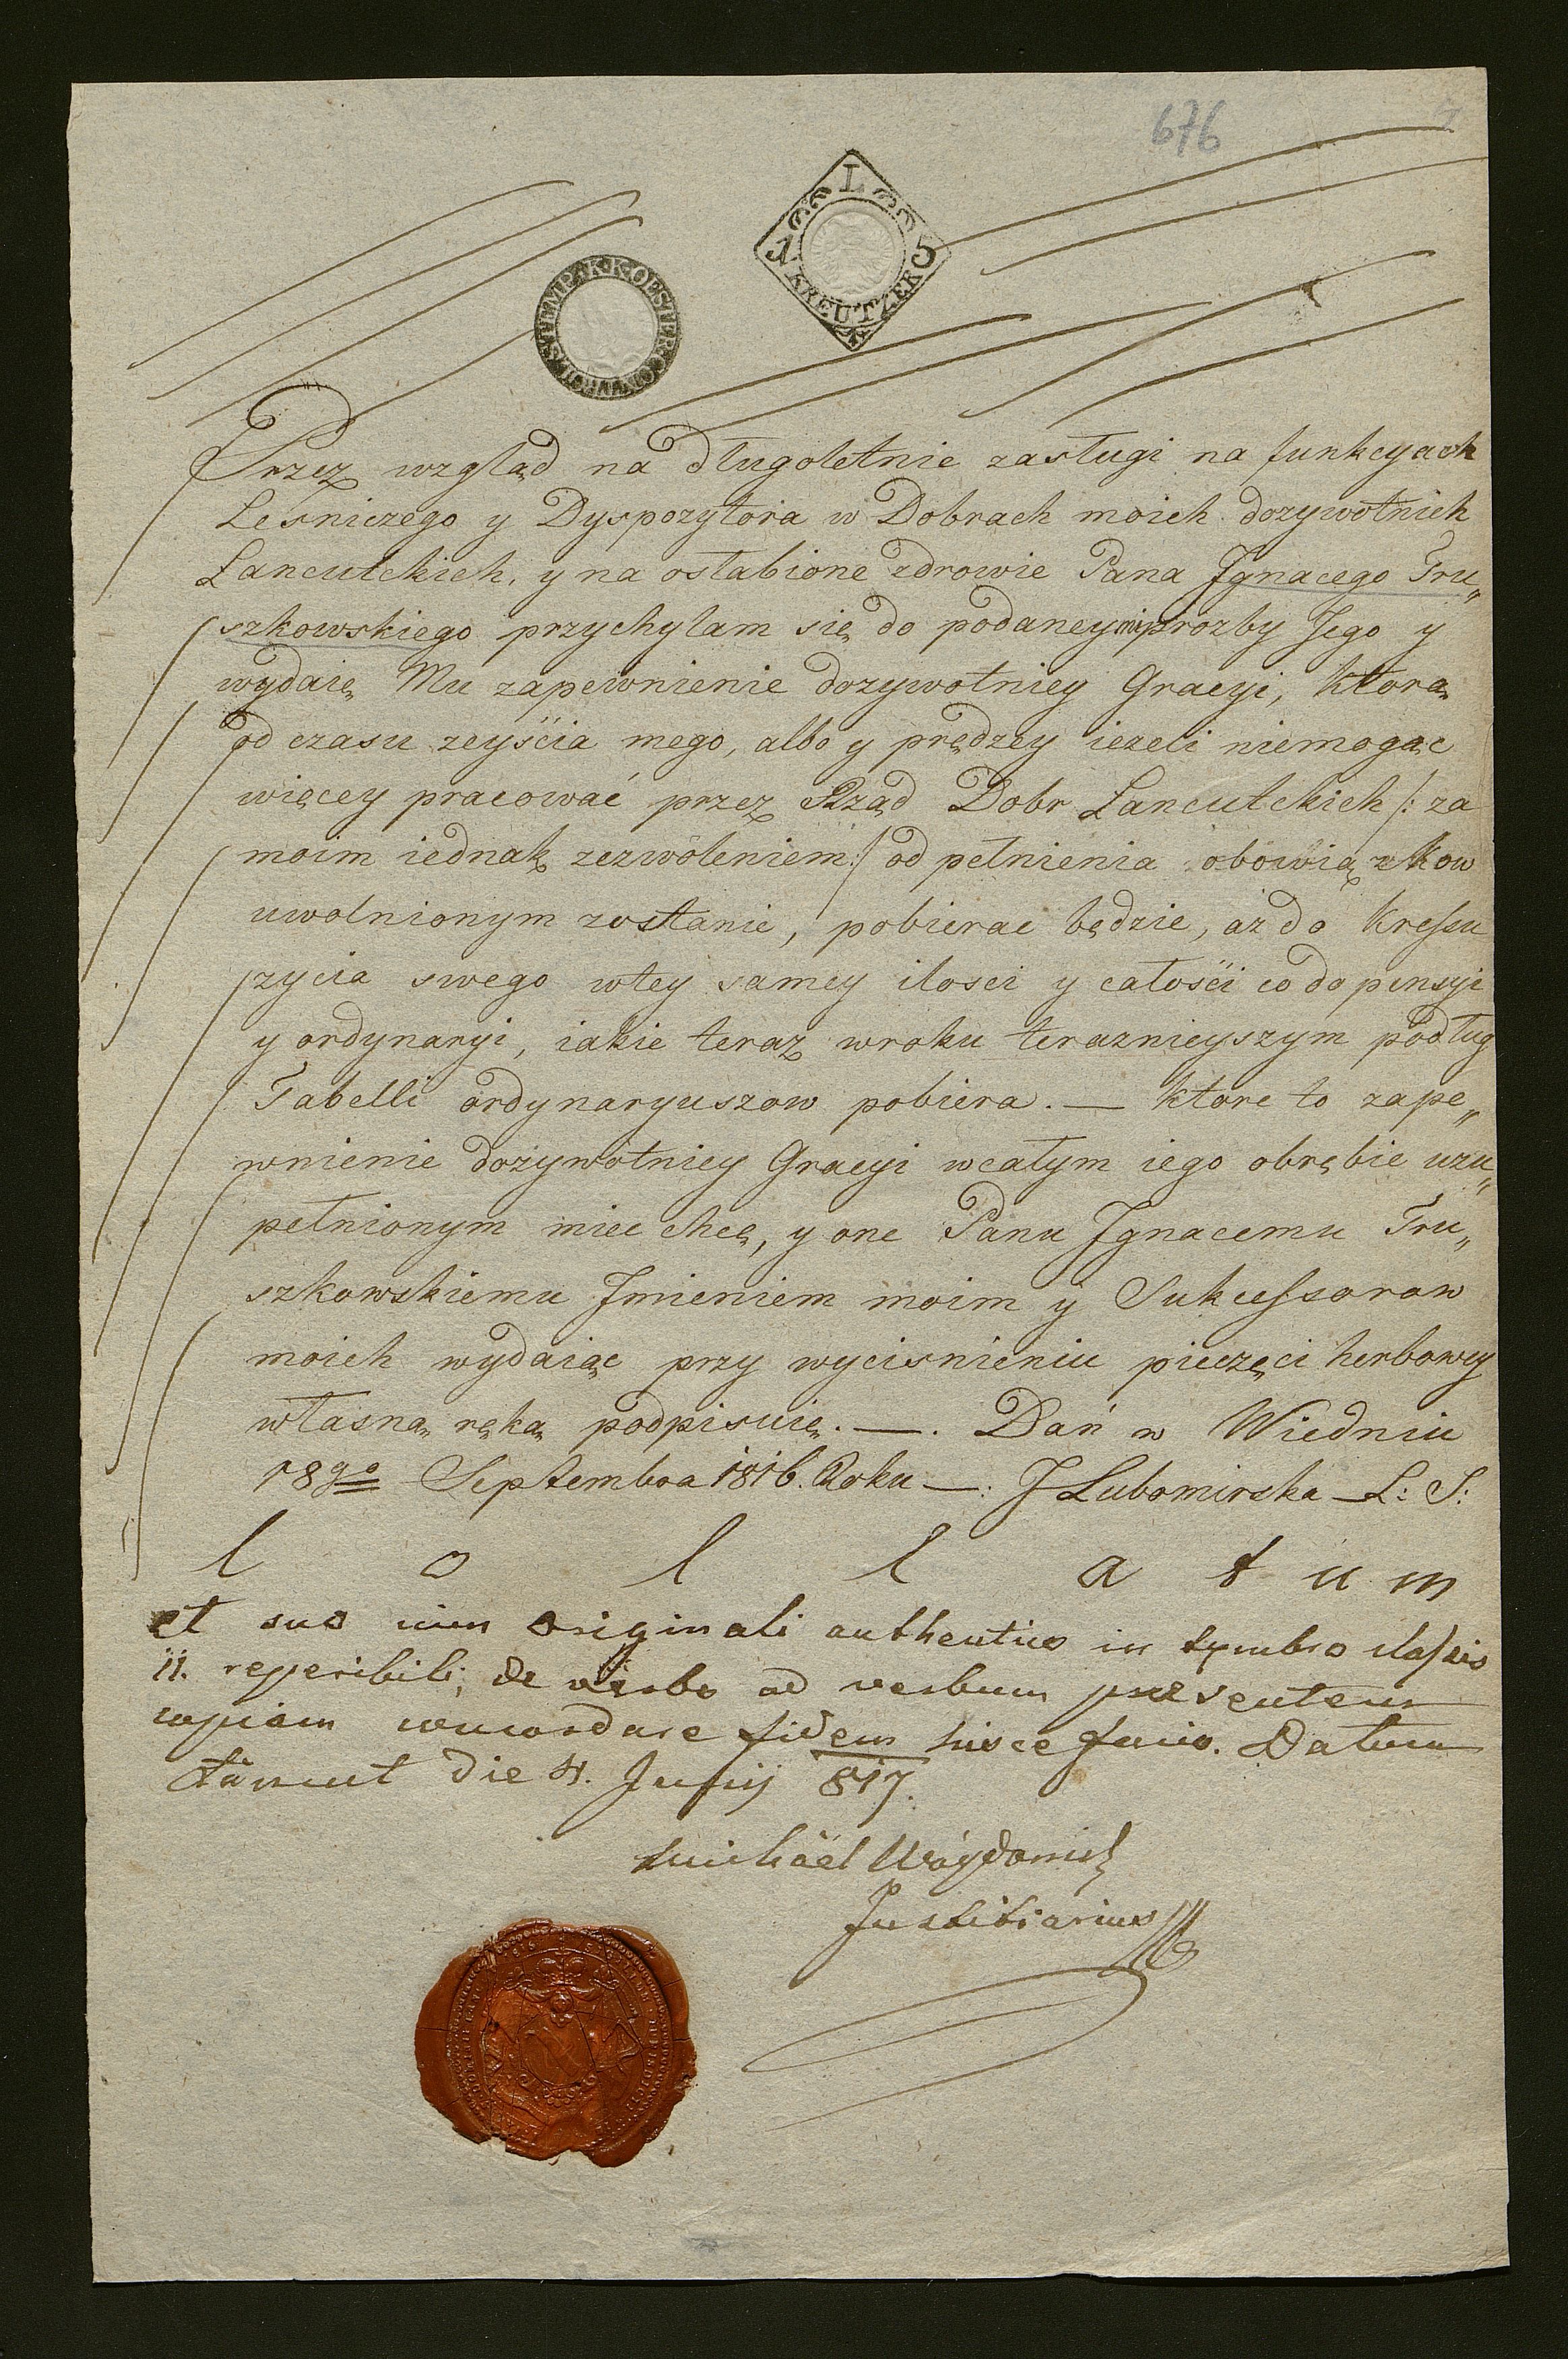 676
L
15
KREUTZER
K·K·OESTER·CONTROL·STEMP·
Przez wzgląd na długoletnie zasługi na funkcyach
Lesniczego y Dyspozytora w Dobrach moich dozywotnich
Lancutckich, y na osłabione zdrowie Pana Jgnacego Tru„
szkowskiego przychylam się do podaney mi prozby Jego y
wydaię Mu zapewnienie dozywotniey Gracyi, ktorą
od czasu zeyścia mego, albo y prędzey iezeli niemogąc
więcey pracować przez Rząd Dobr Lancutckich /: za
moim iednak zezwoleniem :/ od pełnienia obowiązkow
uwolnionym zostanie, pobierac będzie, aż do kressu
zycia swego wtey samey ilosci y całości co do pensyi
y ordynaryi, iakie teraz wroku terazniejszym podług
Tabelli ordynaryuszow pobiera. — ktore to zape„
wnienie dożywotniey Gracyi wcałym iego obrębie uzu„
pełnionym miec chcę, y one Panu Jgnacemu Tru„
szkowskiemu Jmieniem moim y Sukcessorow
moich wydaiąc przy wycisnieniu pieczęci herbowey
własną ręką podpisuię. —. Dań w Wiedniu
18go Septembra 1816. Roku —: J Lubomirska — L: S:
C o l l a t u m
et suo cum Originali authentico in
11. reperibili, de verbo ad verbum präsentem
copiam concordare fidem hisce facio. Datum
Łancut die 4. Junij 817.
Michäel
Justitiarius